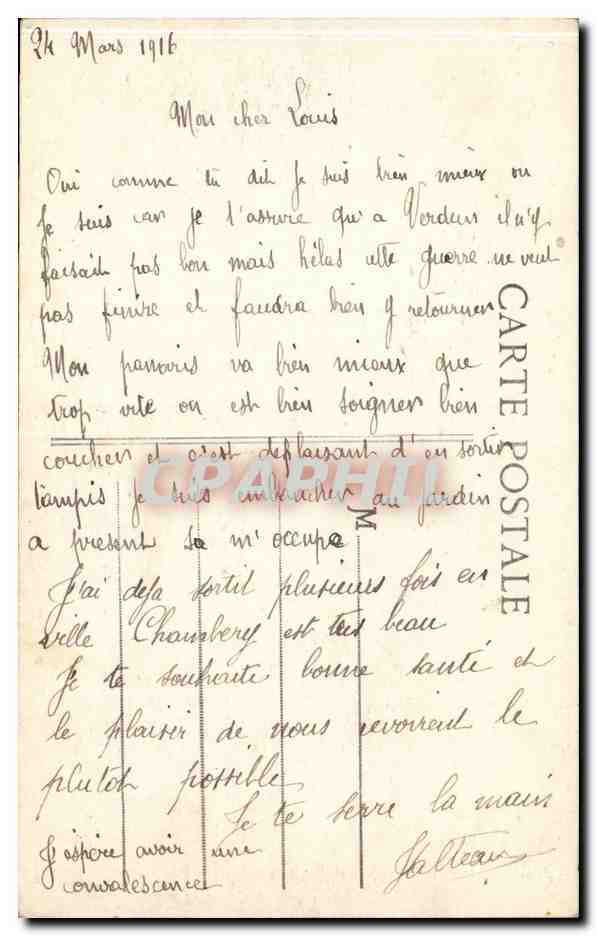 24 Mars 1916
Mon cher Louis
Oui comme tu dit Je suis bien mieux ou
Je suis car je t'assure qu'a Verdun il n'y
faisait pas bon mais hélas cette guerre ne veut
pas finire et faudra bien y retourner
Mon panaris va bien mieux que
trop vite on est bien soigner bien
coucher et c'est deplaisant d'en sortir
tampis je suis embaucher au jardin
a present sa m'occupe
J'ai deja sortit plusieurs fois en
ville Chambery est très beau
Je te souhaite bonne santé et
le plaisir de nous revoirent le
plutot possible
Je te serre la main
J'éspére avoir une
convalescence
CARTE POSTALE
M
CPAPHIL